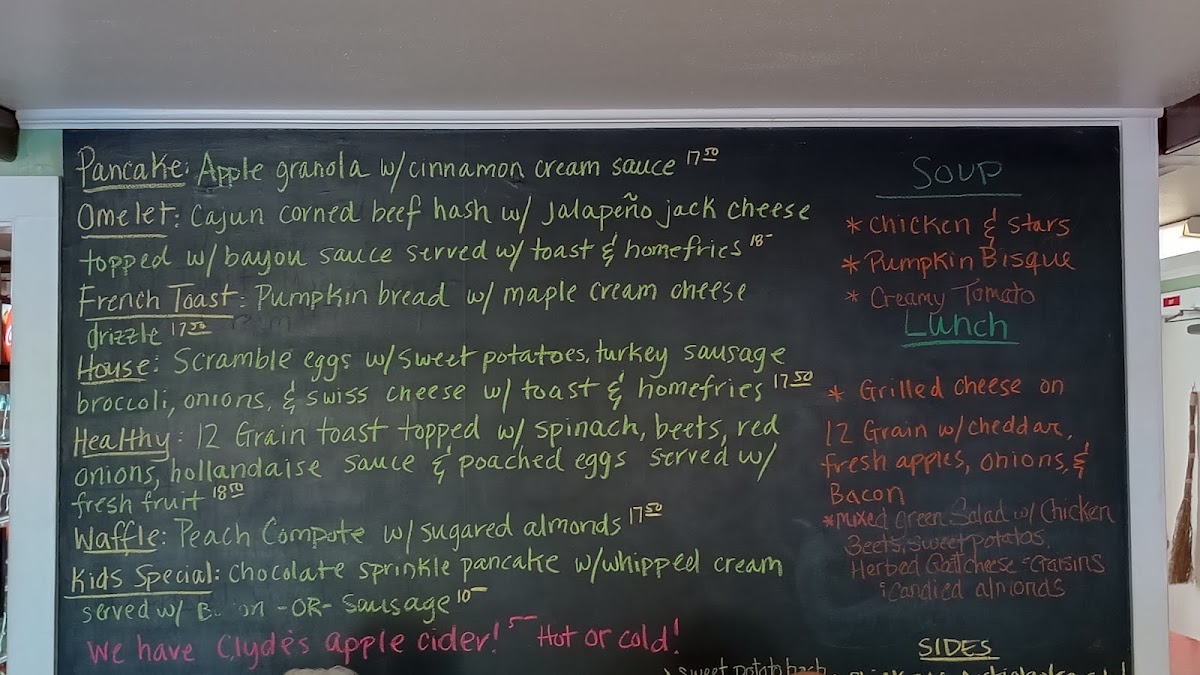 Pancake: Apple granola w/cinnamon cream sauce 17 50
Omelet: Cajun corned beef hash w/ Jalapeño jack cheese
topped w/ bayou sauce served w/ toast & homefries 18-
French Toast: Pumpkin bread w/ maple cream cheese
drizzle 17 50
House: Scramble eggs w/ sweet potatoes, turkey sausage
broccoli, onions, & swiss cheese w/ toast & homefries 17 50
Healthy: 12 Grain toast topped w/ spinach, beets, red
onions, hollandaise sauce & poached eggs served w/
fresh fruit 18 50
Waffle: Peach Compote w/ sugared almonds 17 50
Kids Special: Chocolate sprinkle pancake w/whipped cream
served w/ -OR- Sausage 10-
We have Clyde's apple cider! 5- Hot or cold!
Soup
* Chicken & stars
* Pumpkin Bisque
* Creamy Tomato
Lunch
* Grilled cheese on
12 Grain w/cheddar,
fresh apples, onions, &
Bacon
*Mixed green Salad w/ Chicken
Beets, sweet potatos,
Herbed Goat cheese
Candied almonds
SIDES
sweet potato hash